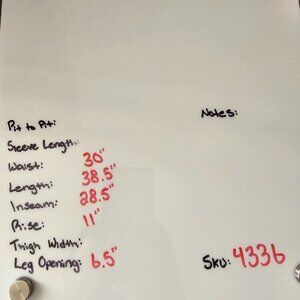 Pit to Pit:
Notes:
Sleeve Length:
Waist: 30"
Length: 38.5"
Inseam: 28.5"
Rise: 11"
Thigh Width:
Leg Opening: 6.5"
SKU: 4336